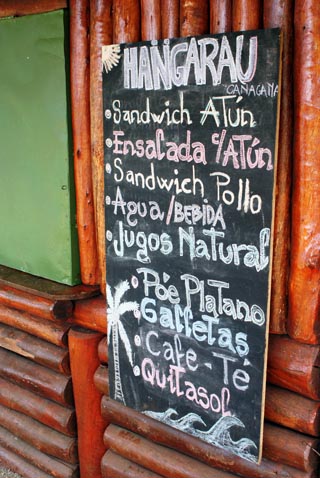 HANGARAU
CAÑAGANA
Sandwich ATÚN
Ensalada c/ATÚN
Sandwich Pollo
Agua/BEBIDA
Jugos Natural
Póe Platano
Galletas
Cafe-Té
Quitasol